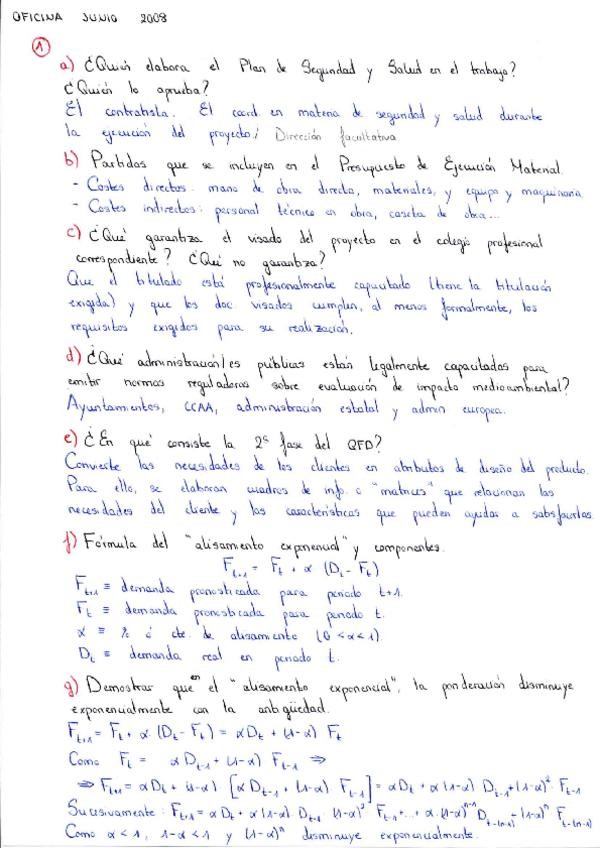 OFICINA JUNIO 2008
1
a) ¿Quién elabora el Plan de Seguridad y Salud en el trabajo?
¿Quién lo aprueba?
El contratista. El coord. en materia de seguridad y salud durante
la ejecución del proyecto / Dirección facultativa
b) Partidas que se incluyen en el Presupuesto de Ejecución Material.
- Costes directos: mano de obra directa, materiales, y equipo y maquinaria
- Costes indirectos: personal técnico en obra, caseta de obra...
c) ¿Qué garantiza el visado del proyecto en el colegio profesional
correspondiente? ¿Qué no garantiza?
Que el titulado está profesionalmente capacitado (tiene la titulación
exigida) y que los doc. visados cumplen, al menos formalmente, los
requisitos exigidos para su realización.
d) ¿Qué administración/es públicas están legalmente capacitadas para
emitir normas reguladoras sobre evaluación de impacto medioambiental?
Ayuntamientos, CCAA, administración estatal y admin europea.
e) ¿En qué consiste la 2ª fase del QFD?
Convierte las necesidades de los clientes en atributos de diseño del producto.
Para ello, se elaboran cuadros de info. o "matrices" que relacionan las
necesidades del cliente y las características que pueden ayudar a satisfacerlas.
f) Fórmula del "alisamiento exponencial" y componentes.
F_{t+1} = F_t + α (D_t - F_t)
F_{t+1} ≡ demanda pronosticada para periodo t+1.
F_t ≡ demanda pronosticada para periodo t.
α ≡ % ó cte. de alisamiento (0<α<1).
D_t ≡ demanda real en periodo t.
g) Demostrar que en el "alisamiento exponencial", la ponderación disminuye
exponencialmente con la antigüedad.
F_{t+1} = F_t + α (D_t - F_t) = αD_t + (1-α) F_t
Como F_t = αD_{t-1} + (1-α) F_{t-1} ⇒
⇒ F_{t+1} = αD_t + (1-α) [αD_{t-1} + (1-α) F_{t-1}] = αD_t + α(1-α) D_{t-1} + (1-α)² F_{t-1}
Sucesivamente: F_{t+1} = αD_t + α(1-α) D_{t-1} (1-α)² F_{t-1} + ... + α(1-α)^{n-1} D_{t-(n-1)} + (1-α)^n F_{t-(n-1)}
Como α<1, 1-α<1 y (1-α)^n disminuye exponencialmente.